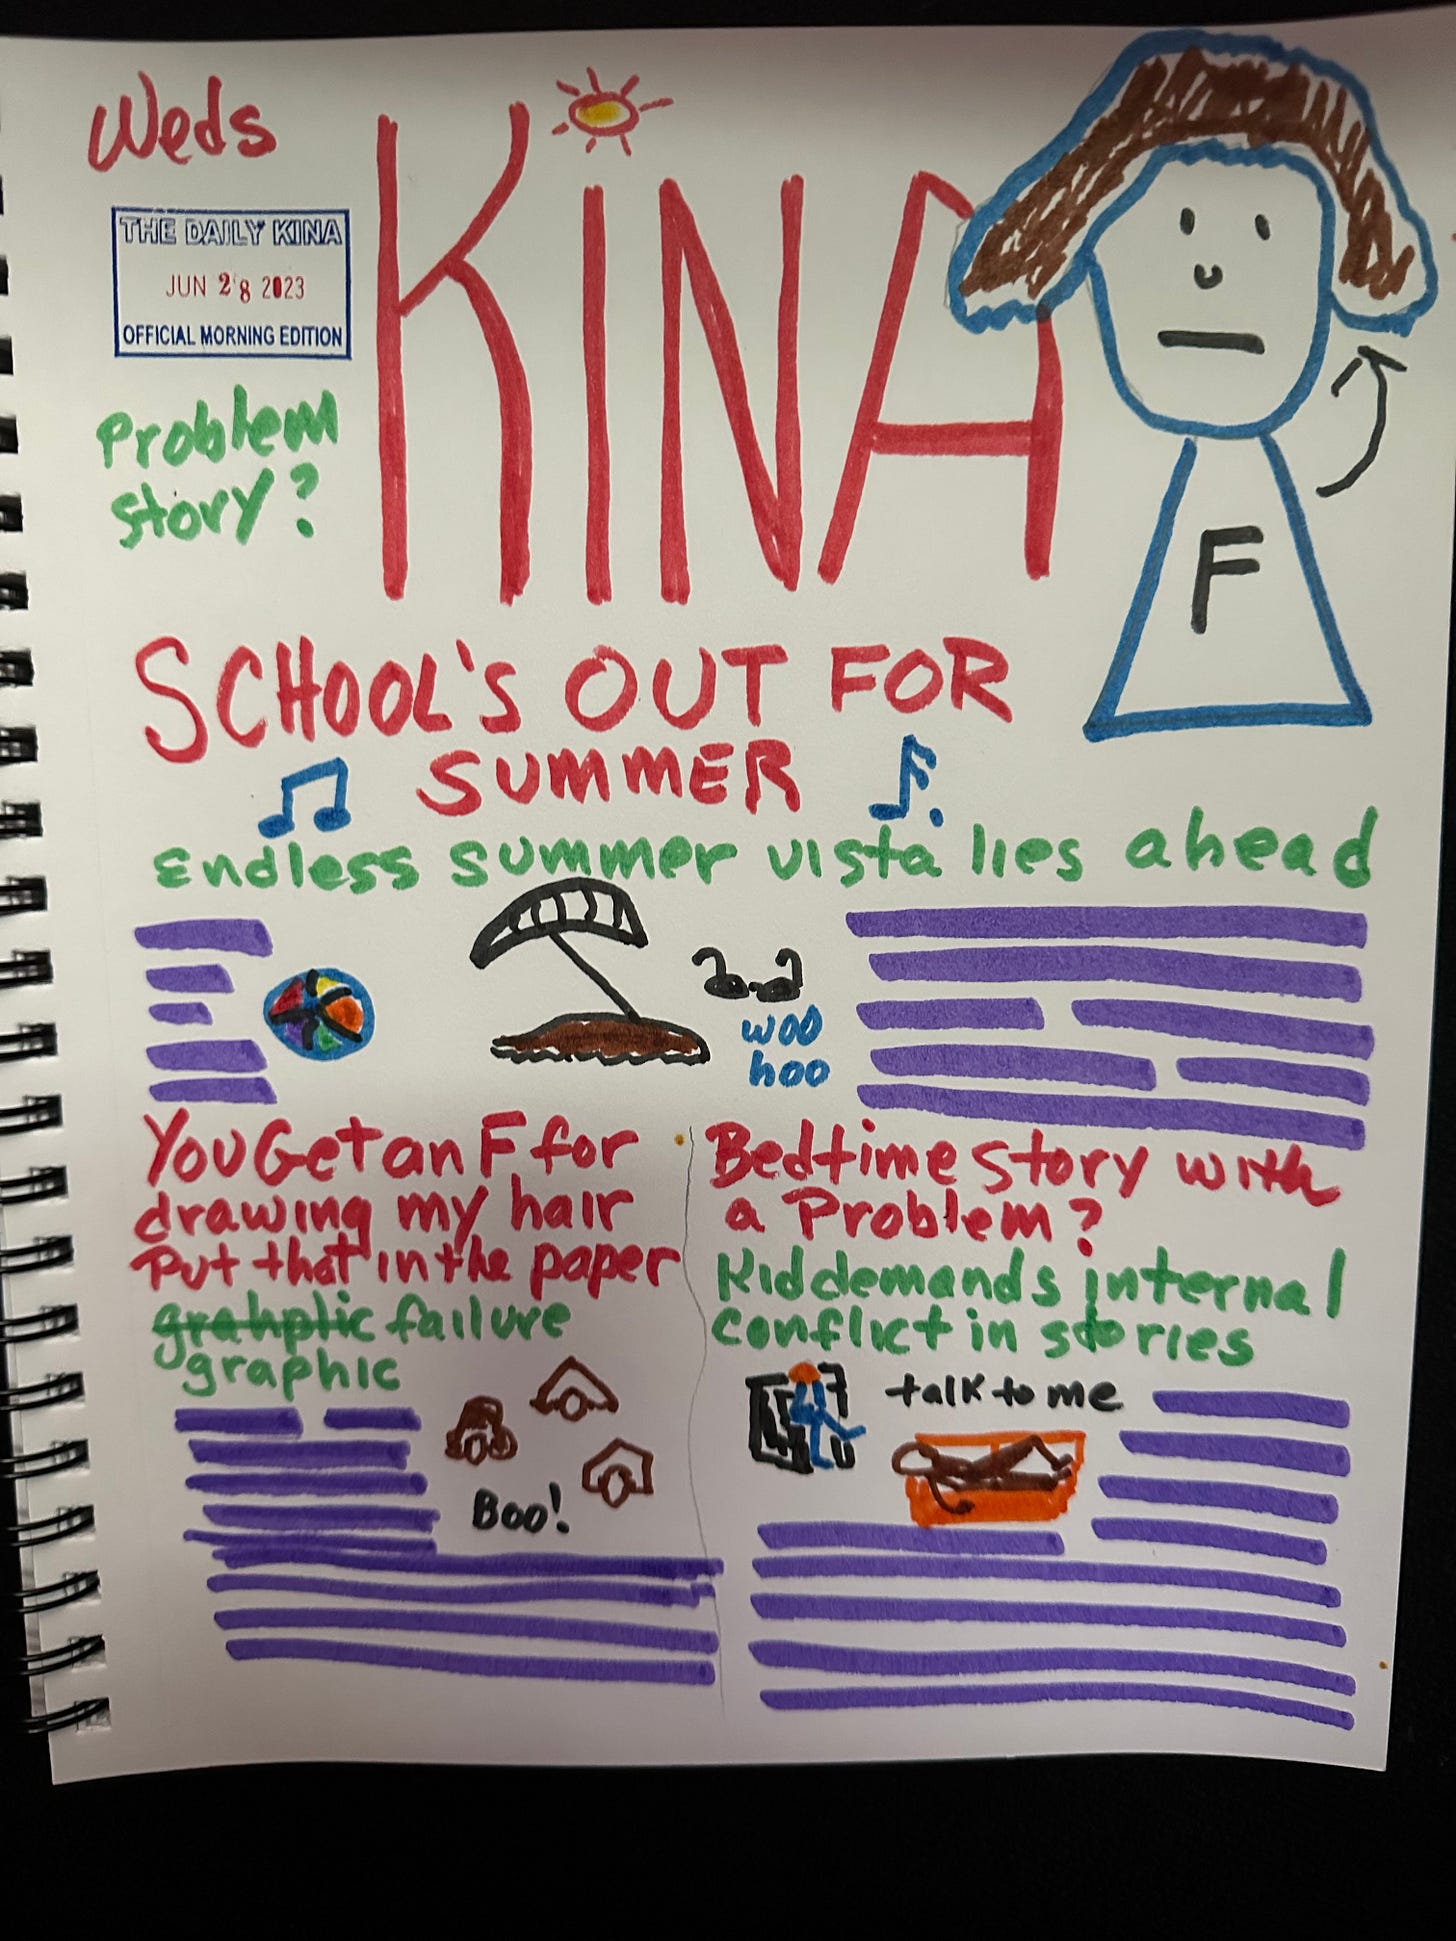 Weds
THE DAILY KINA
JUN 28 2023
OFFICIAL MORNING EDITION
Problem
story?
KINA
F
SCHOOL'S OUT FOR
SUMMER
Endless summer vista lies ahead
woo
hoo
You Get an F for
drawing my hair
Put that in the paper
grahplic failure
graphic
Boo!
Bedtime story with
a Problem?
Kid demands internal
conflict in stories
talk to me